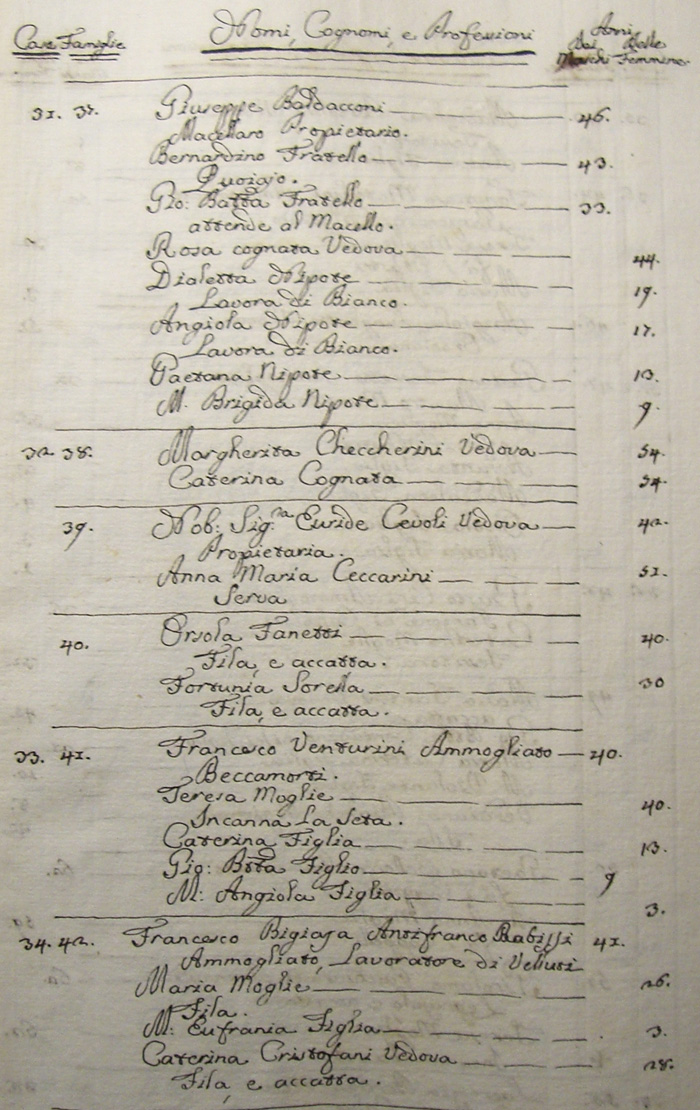 Case Famiglie Nomi, Cognomi, e Professioni Anni
Dei Delle
Maschi Femmine
31. 37. Giuseppe Baldacconi 46.
Macellaro Propietario.
Bernardino Fratello 43.
Quoiajo.
Gio: Batta Fratello 33.
attende al Macello.
Rosa cognata Vedova 44.
Dialetta Nipote 19.
Lavora di Bianco.
Angiola Nipote 17.
Lavora di Bianco.
Gaetana Nipote 13.
M. Brigida Nipote 9.
32. 38. Margherita Checcherini Vedova 54.
Caterina Cognata 54.
39. Nob: Sig.ra Euride Cevoli Vedova 42.
Propietaria.
Anna Maria Ceccarini 51.
Serva
40. Orsola Fanetti 40.
Fila, e accatta.
Fortunia Sorella 30
Fila, e accatta.
33. 41. Francesco Venturini Ammogliato 40.
Beccamorti.
Teresa Moglie 40.
Incanna La Seta.
Caterina Figlia 13.
Gio: Btta Figlio 9
M: Angiola Figlia 3.
34. 42. Francesco Bigiaja 41.
Ammogliato, Lavoratore di Velluti
Maria Moglie 26.
Fila.
M: Eufrania Figlia 3.
Caterina Cristofani Vedova 28.
Fila, e accatta.